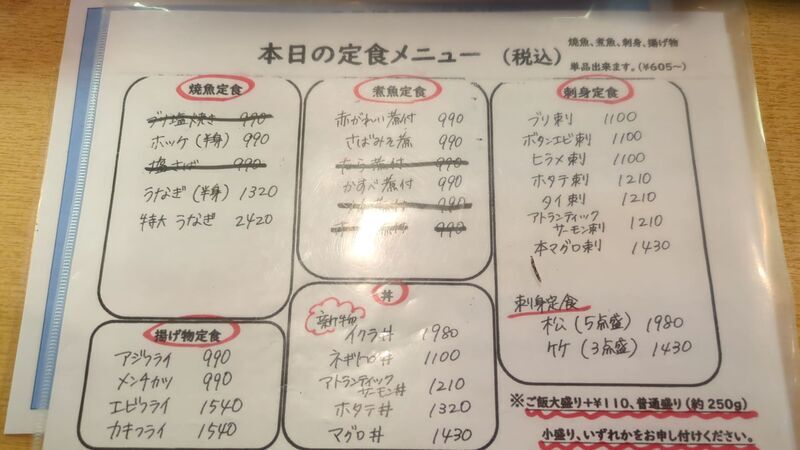 本日の定食メニュー (税込)
焼魚、煮魚、刺身、揚げ物
単品出来ます。(¥605〜)
焼魚定食
ブリ塩焼き 990
ホッケ (半身) 990
塩さば 990
うなぎ (半身) 1320
特大 うなぎ 2420
煮魚定食
赤がれい煮付 990
さばみそ煮 990
なら煮付 990
かすべ煮付 990
煮付 990
990
刺身定食
ブリ刺 1100
ボタンエビ刺 1100
ヒラメ刺 1100
ホタテ刺 1210
タイ刺 1210
アトランティック
サーモン刺 1210
本マグロ刺 1430
刺身定食
松 (5点盛) 1980
竹 (3点盛) 1430
揚げ物定食
アジフライ 990
メンチカツ 990
エビフライ 1540
カキフライ 1540
丼
新物
イクラ丼 1980
ネギトロ丼 1100
アトランティック
サーモン丼 1210
ホタテ丼 1320
マグロ丼 1430
※ご飯大盛り+¥110、普通盛り(約250g)
小盛り、いずれかをお申し付けください。